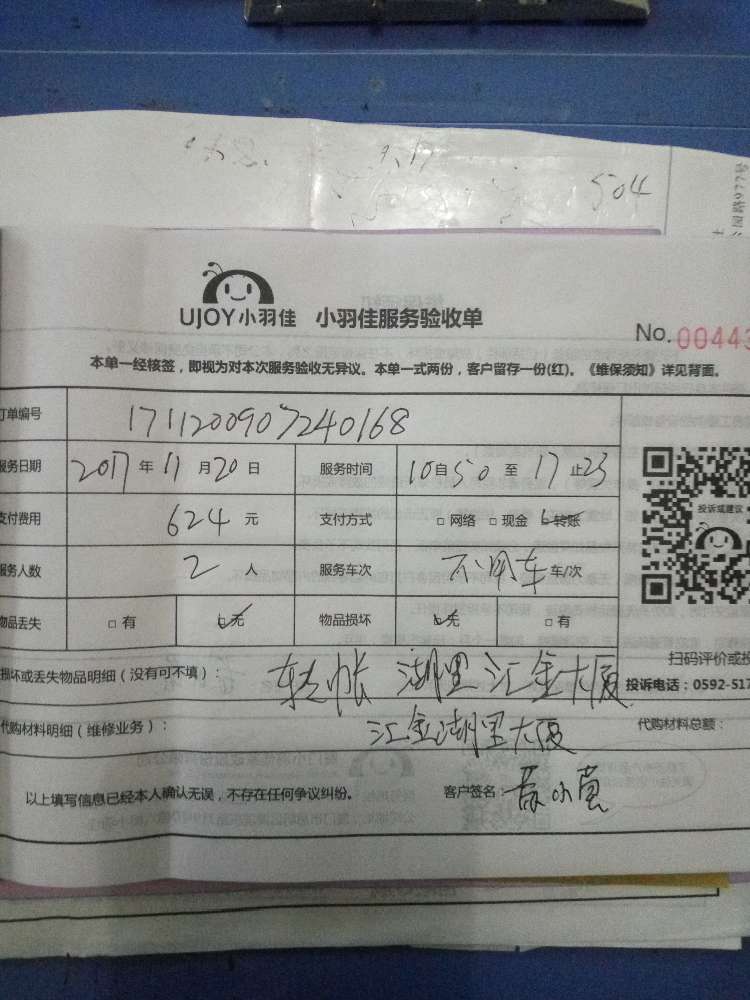 504
UJOY小羽佳 小羽佳服务验收单
No. 00443
本单一经核签，即视为对本次服务验收无异议。本单一式两份，客户留存一份(红)。《维保须知》详见背面。
订单编号 1711200907240168
服务日期 2017 年 11 月 20 日 服务时间 10 自 50 至 17 止 23
支付费用 624 元 支付方式 □ 网络 □ 现金 □ 转账
服务人数 2 人 服务车次 不用车 车/次
物品丢失 □ 有 □ 无 物品损坏 □ 无 □ 有
投诉或建议
扫码评价或投
损坏或丢失物品明细（没有可不填）： 转帐 湖里汇金大厦
投诉电话：0592-517
代购材料明细（维修业务）： 汇金湖里大厦 代购材料总额：
以上填写信息已经本人确认无误，不存在任何争议纠纷。 客户签名：